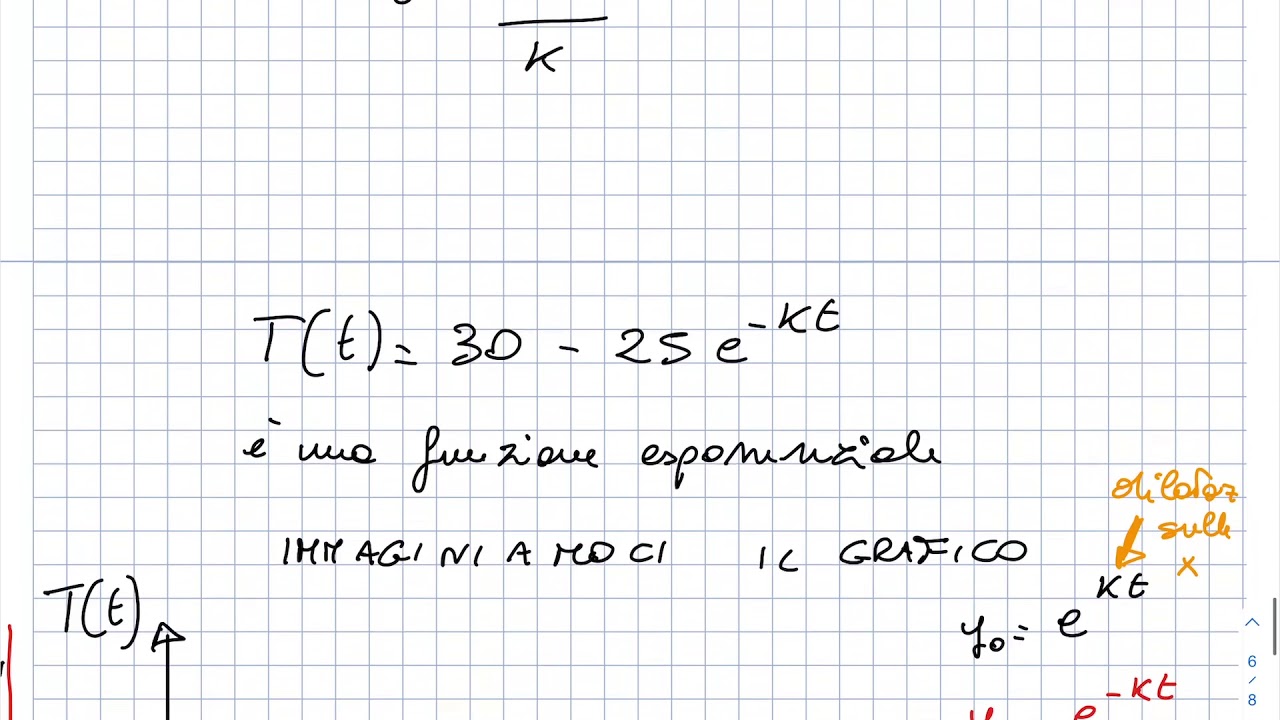 K
T(t) = 30 - 25 e^-Kt
è una funzione esponenziale
IMMAGINIAMOCI IL GRAFICO
dilataz
sulle
x
T(t)
y₀ = e^Kt
e^-Kt
6
/
8